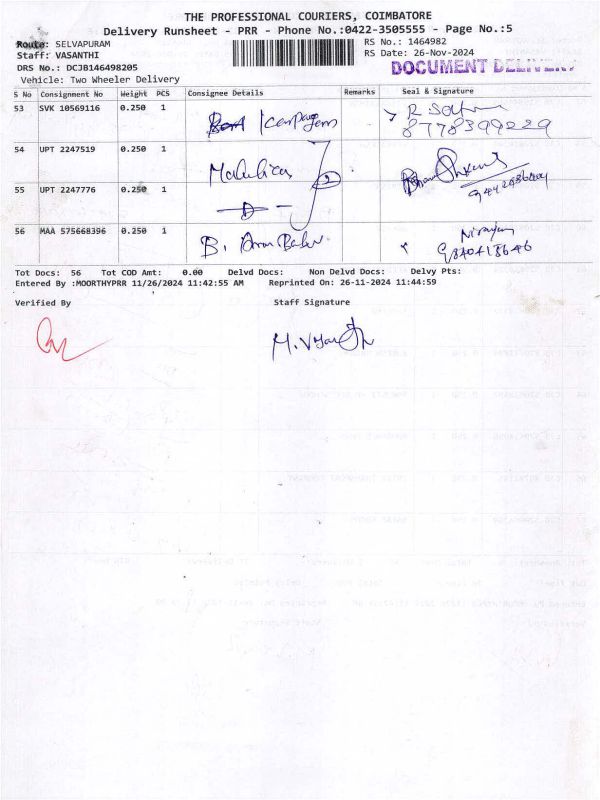 THE PROFESSIONAL COURIERS, COIMBATORE
Delivery Runsheet - PRR - Phone No.:0422-3505555 - Page No.:5
Route: SELVAPURAM
RS No.: 1464982
Staff: VASANTHI
RS Date: 26-Nov-2024
DRS No.: DCJB146498205
DOCUMENT DELIVERY
Vehicle: Two Wheeler Delivery
S No Consignment No Weight PCS Consignee Details Remarks Seal & Signature
53 SVK 10569116 0.250 1
8778399229
54 UPT 2247519 0.250 1
55 UPT 2247776 0.250 1
56 MAA 575668396 0.250 1 B.
9840418646
Tot Docs: 56 Tot COD Amt: 0.00 Delvd Docs: Non Delvd Docs: Delvy Pts:
Entered By :MOORTHYPRR 11/26/2024 11:42:55 AM Reprinted On: 26-11-2024 11:44:59
Verified By Staff Signature